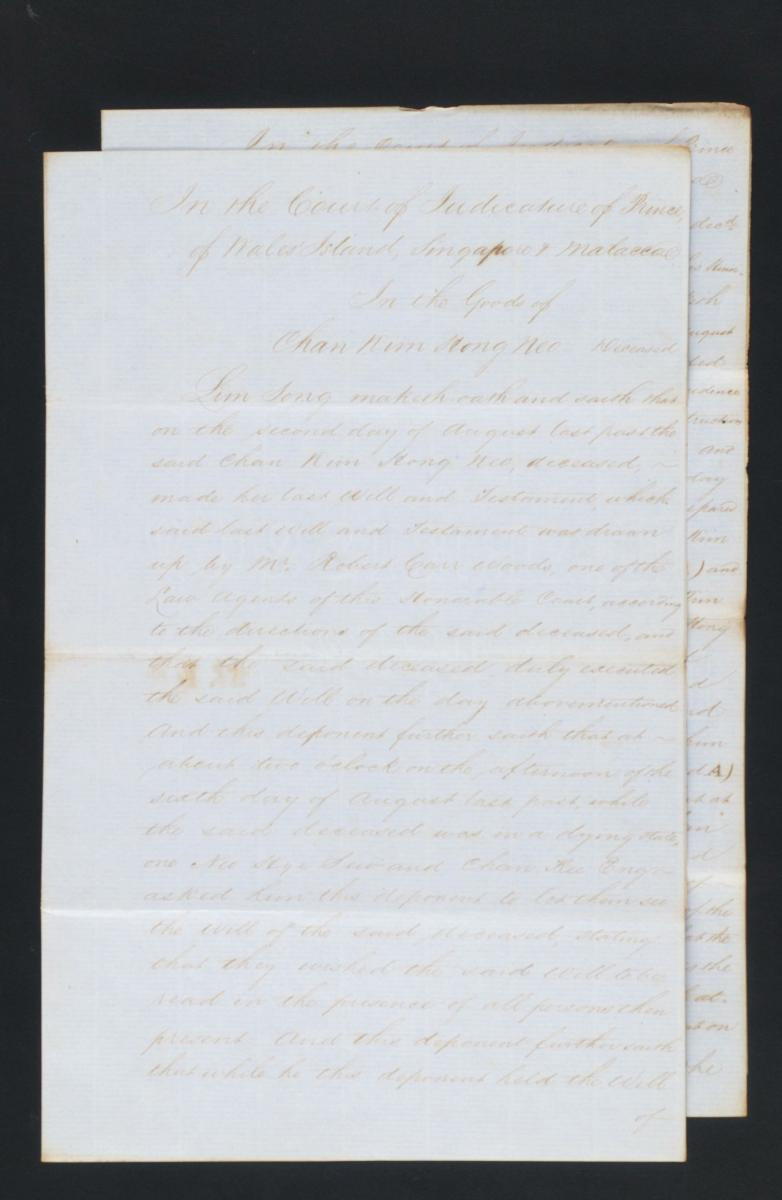 In the Court of Judicature of Prince,
of Wales' Island, Singapore & Malacca
In the Goods of
Chan Kim Hong Neo Deceased
Lim Song maketh oath and saith that
on the second day of August last past the
said Chan Kim Hong Neo, deceased, ~
made her last Will and Testament, which
said last Will and Testament was drawn
up by Mr. Robert Carr Woods, one of the
Law Agents of this Honorable Court, according
to the directions of the said deceased, and
that the said deceased duly executed
the said Will on the day abovementioned
And this deponent further saith that at ~
about two o'clock on the afternoon of the
sixth day of August last past, while
the said deceased was in a dying state,
one Neo Hye Seo and Chan Kee Eng
asked him this deponent to let them see
the Will of the said deceased, stating
that they wished the said Will to be
read in the presence of all persons then
present And this deponent further saith
that while he this deponent held the Will
of
In the Court of
Prince
August
and
day
Kim
) and
Tim
Hong
A)
of the
at the
the
at on
he